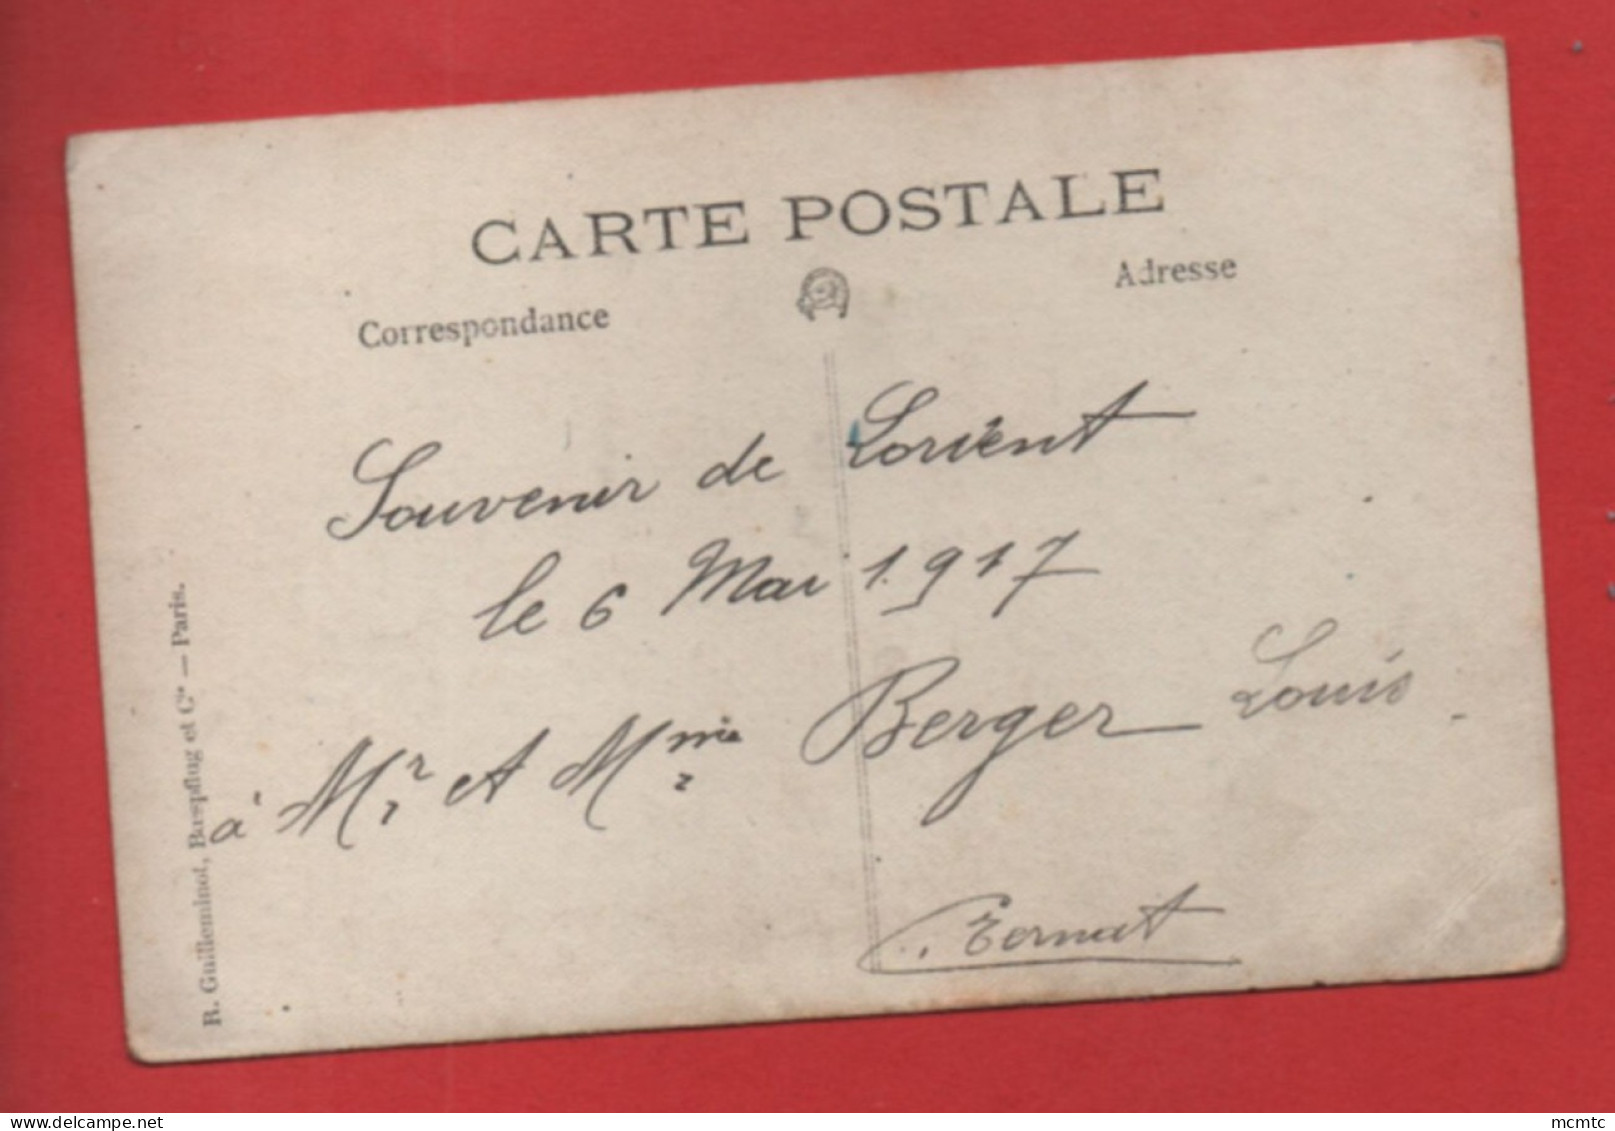 CARTE POSTALE
Correspondance
Adresse
Souvenir de Lorient
le 6 Mai 1.917
à Mr et Mme Berger Louis
R. Guilleminot, Bœspflug et Cie — Paris.
mcmtc